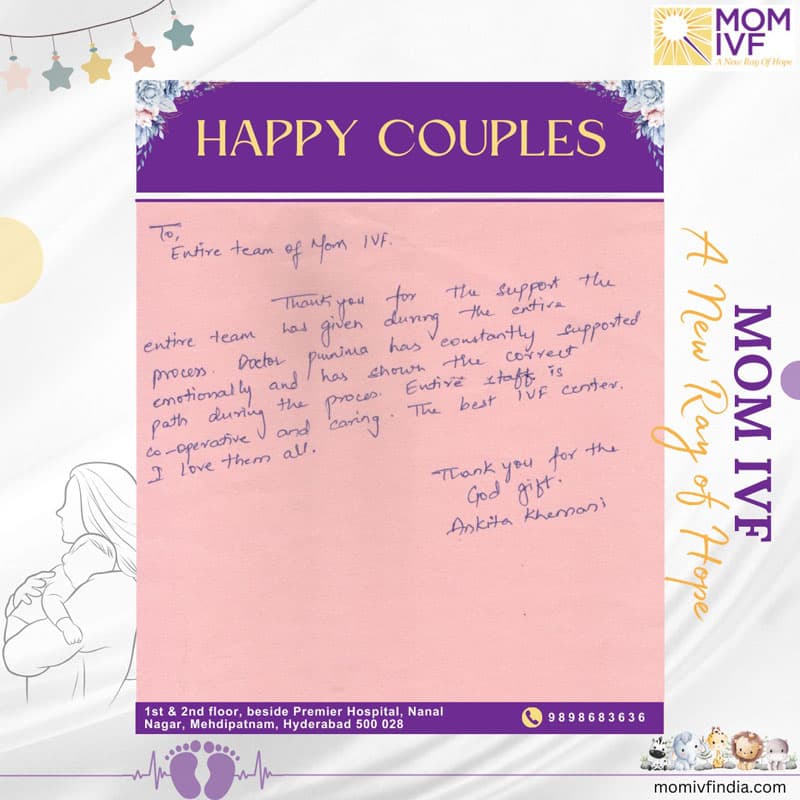 MOM
IVF
A New Ray Of Hope
HAPPY COUPLES
To,
Entire team of Mom IVF.
Thank you for the support the
entire team has given during the entire
process. Doctor Purnima has constantly supported
emotionally and has shown the correct
path during the proces. Entire staff is
co-operative and caring. The best IVF center.
I love them all.
Thank you for the
God gift.
Ankita Khemani
MOM IVF
A New Ray of Hope
1st & 2nd floor, beside Premier Hospital, Nanal
Nagar, Mehdipatnam, Hyderabad 500 028
9898683636
momivfindia.com